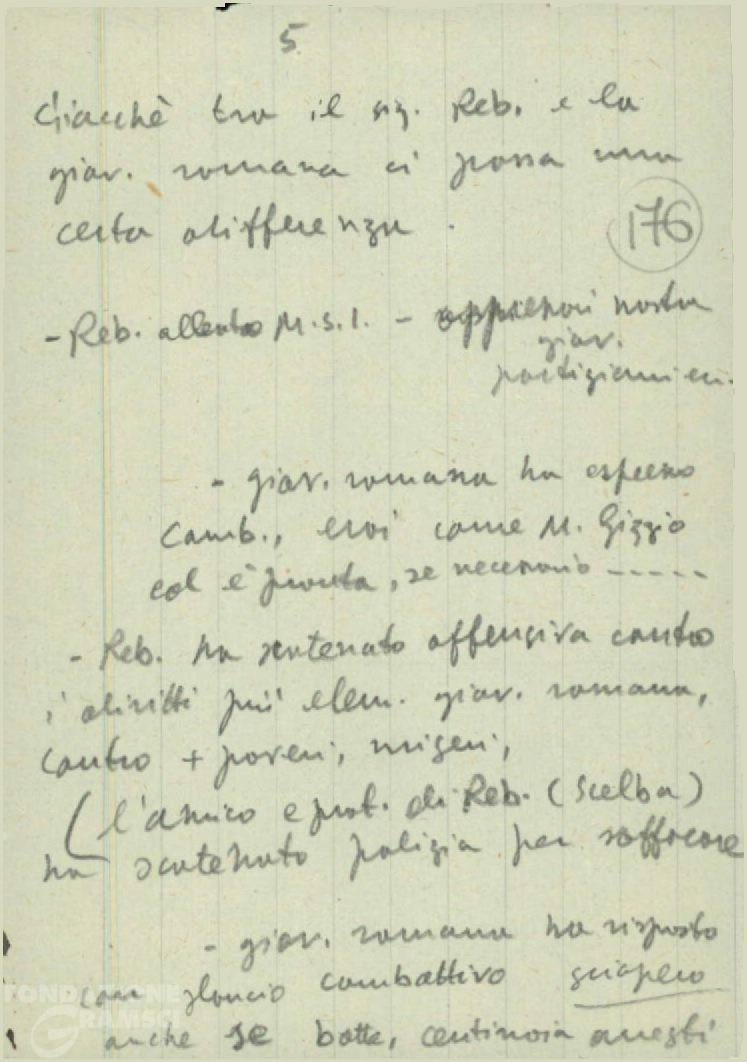 5
Giacchè tra il sig. Reb. e la
giov. romana ci passa una
certa differenza.
176
- Reb. alleato M.S.I. - nostra
giov.
partigiani
- giov. romana ha espresso
Comb., eroi come M. Gizzio
ed è pronta, se necessario -----
- Reb. ha scatenato offensiva contro
i diritti più elem. giov. romana,
contro + poveri, miseri,
(l'amico e prot. di Reb. (Scelba)
ha scatenato polizia per soffocare
- giov. romana ha risposto
con slancio combattivo sciopero
anche se botte, centinaia arresti
FONDAZIONE
GRAMSCI